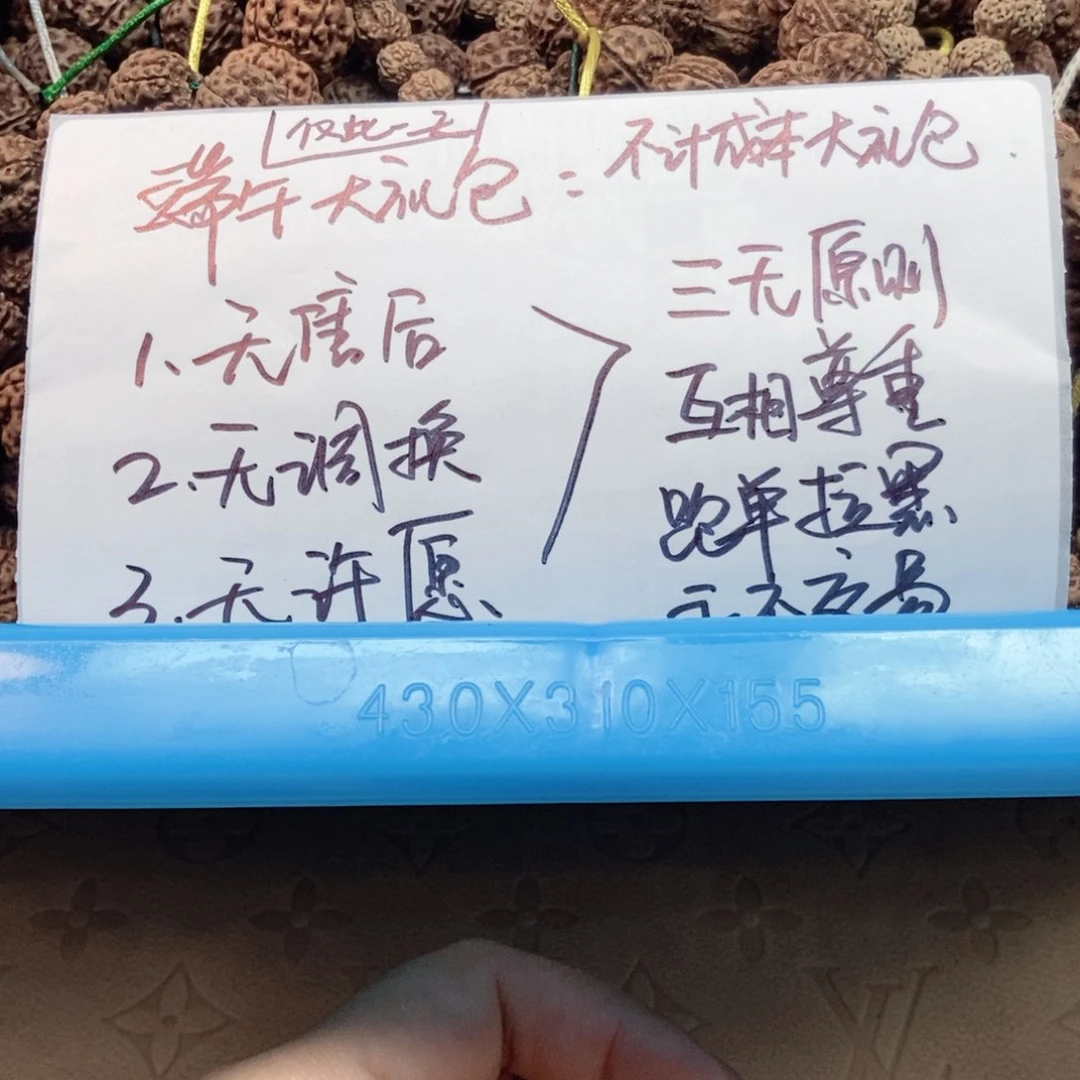 仅此一天
端午大礼包=不计成本大礼包
1.无售后
2.无调换
3.无许愿
三无原则
互相尊重
跑单拉黑
永不交易
430X310X155
LV